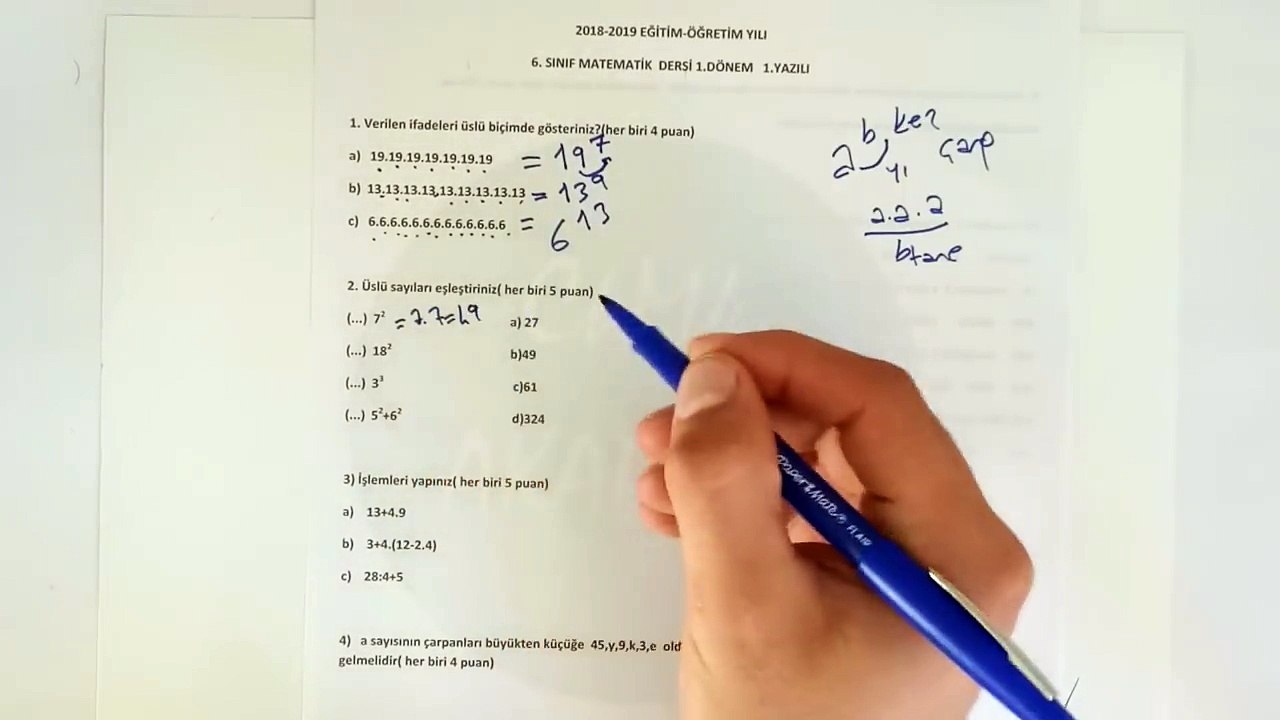 2018-2019 EĞİTİM-ÖĞRETİM YILI
6. SINIF MATEMATİK DERSİ 1.DÖNEM 1.YAZILI
1. Verilen ifadeleri üslü biçimde gösteriniz?(her biri 4 puan)
a) 19.19.19.19.19.19.19 = 19⁷
b) 13.13.13.13.13.13.13.13.13 = 13⁹
c) 6.6.6.6.6.6.6.6.6.6.6.6.6 = 6¹³
a^b yı kez çarp
a.a.a
b tane
2. Üslü sayıları eşleştiriniz( her biri 5 puan)
(...) 7² = 7.7=49 a) 27
(...) 18² b)49
(...) 3³ c)61
(...) 5²+6² d)324
3) İşlemleri yapınız( her biri 5 puan)
a) 13+4.9
b) 3+4.(12-2.4)
c) 28:4+5
4) a sayısının çarpanları büyükten küçüğe 45,y,9,k,3,e old
gelmelidir( her biri 4 puan)
Paper&Mate FLAIR